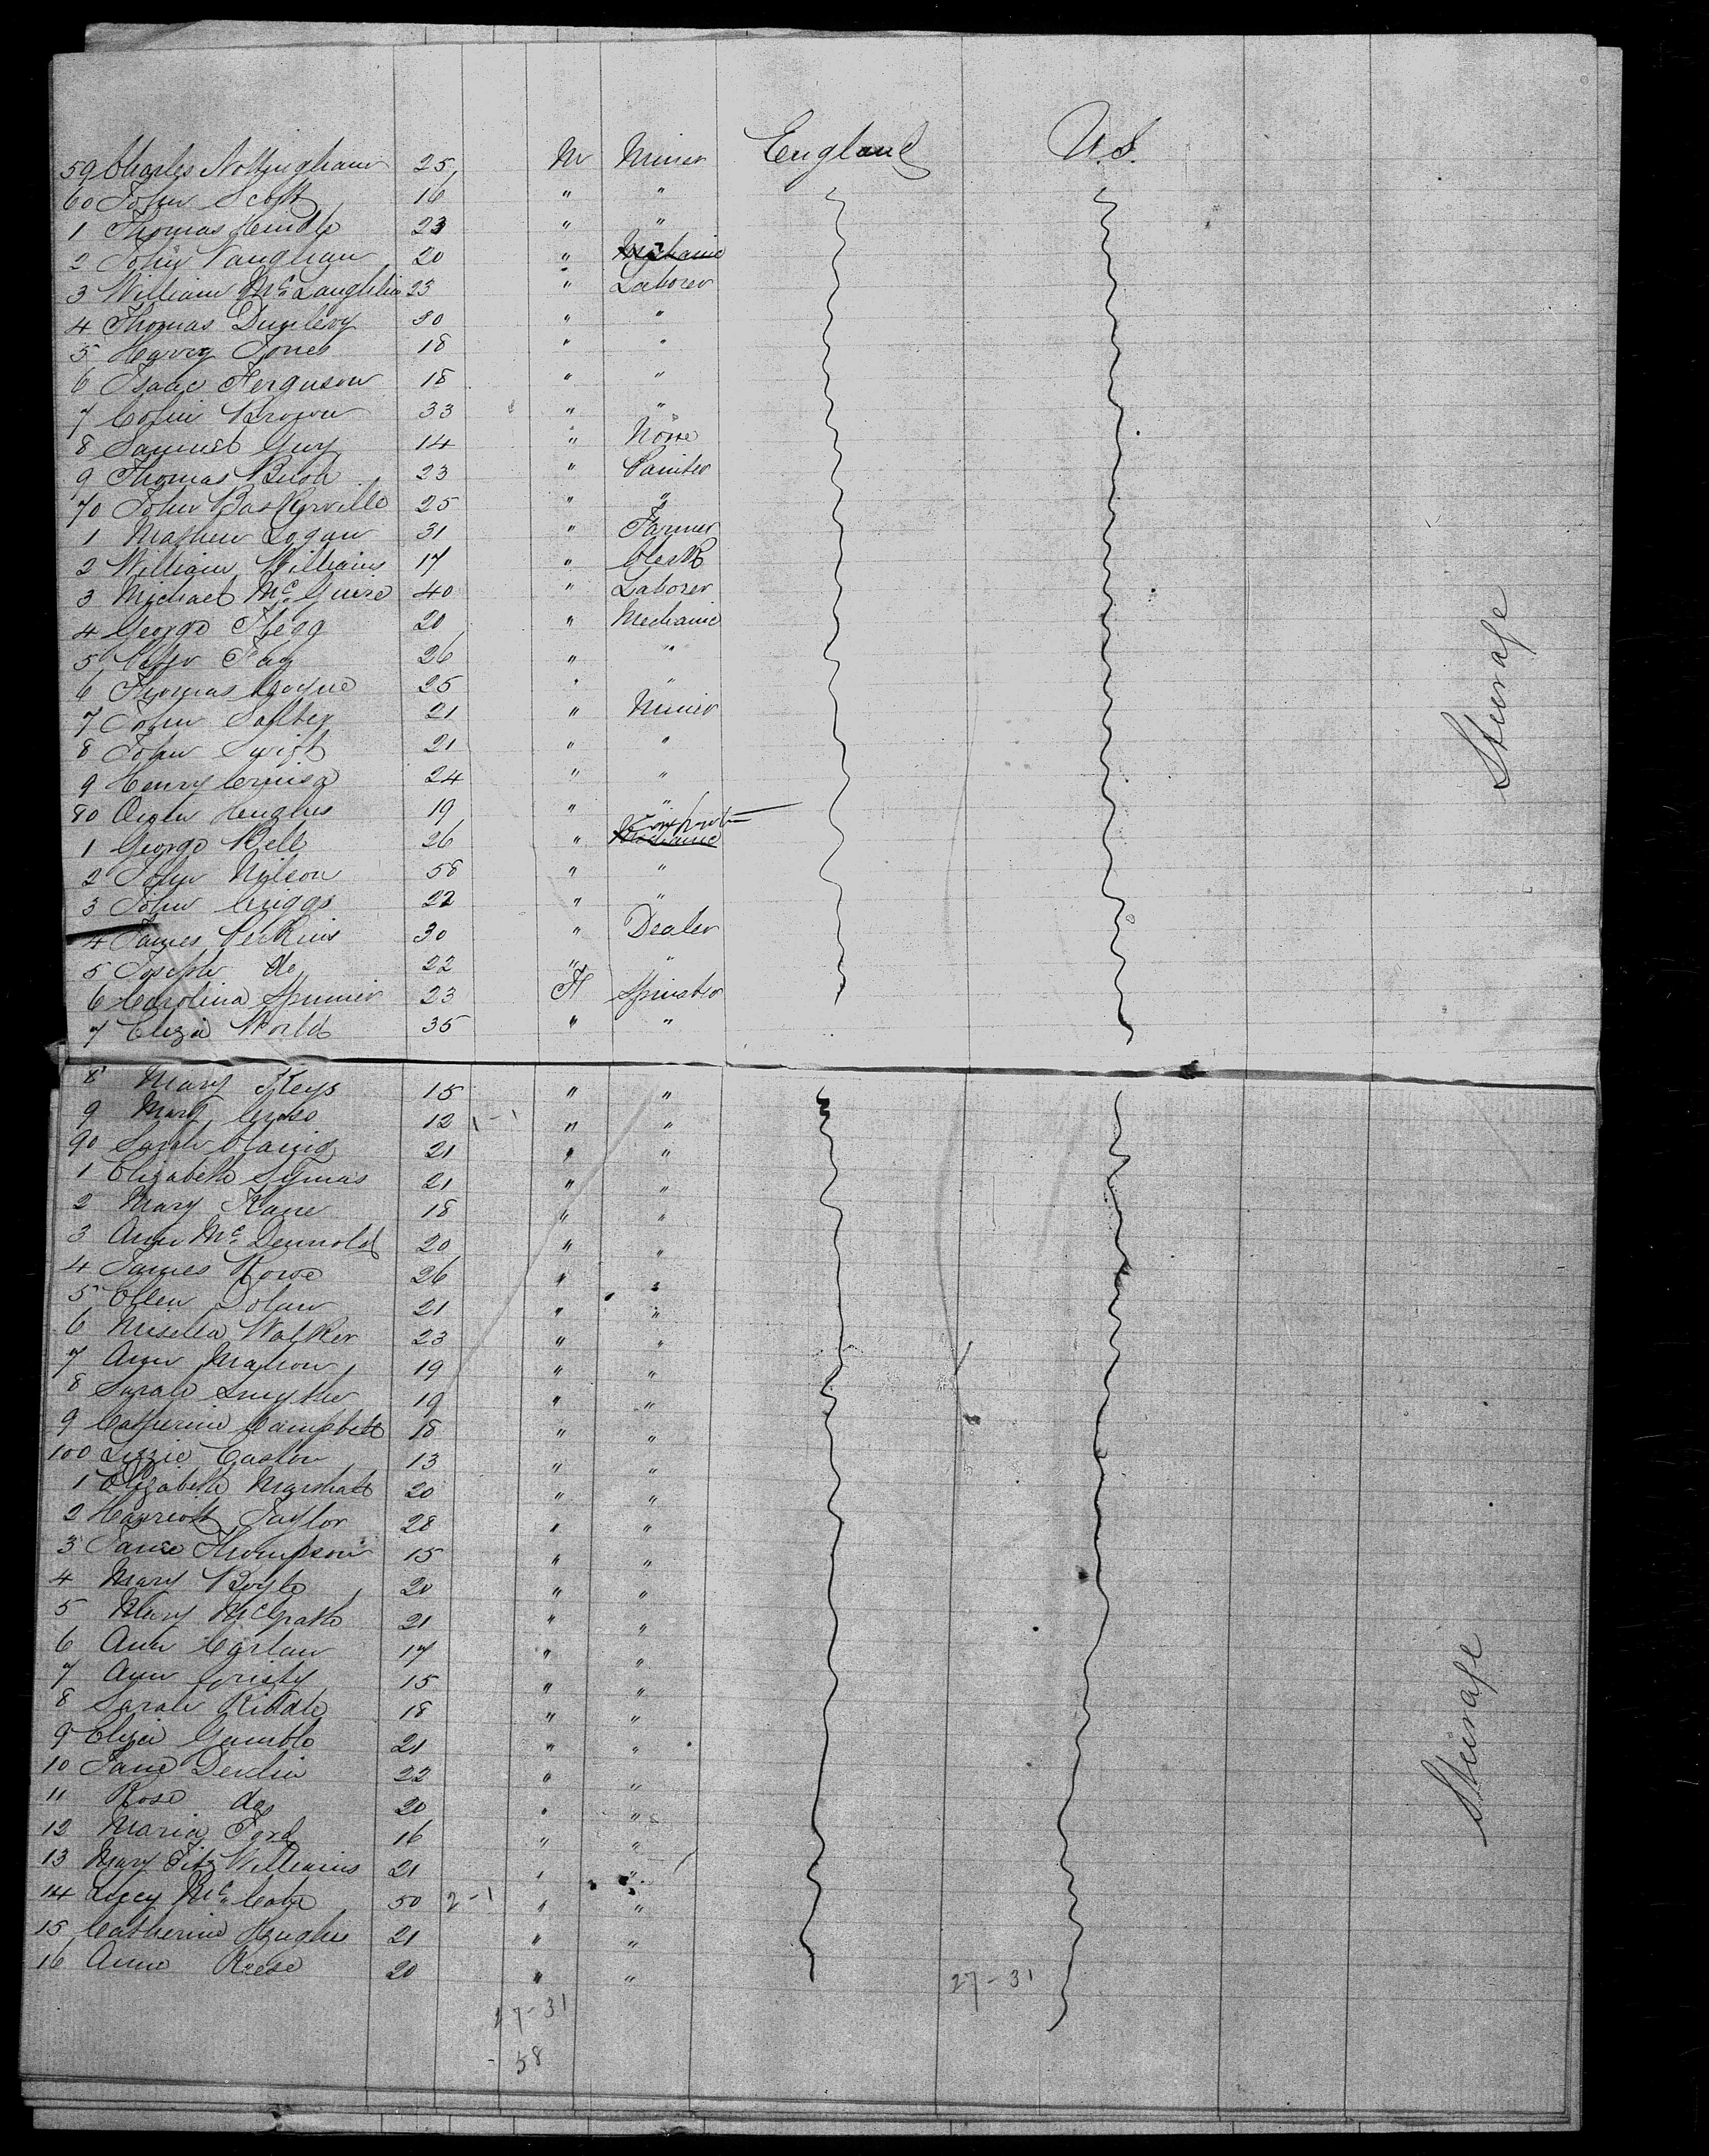 59 Charles Nottingham 25 M Miner England U.S.
60 John Scott 16 " "
1 Thomas Hindle 23 " "
2 John Vaughan 20 " Mechanic
3 William McLaughlin 23 " Laborer
4 Thomas Dunlevy 30 " "
5 Harvey Jones 18 " "
6 Isaac Ferguson 18 " "
7 Colin Brown 33 " "
8 Samuel Guy 14 " None
9 Thomas 23 " Painter
70 John Baskerville 25 " "
1 Mathew Logan 31 " Farmer
2 William Williams 17 " Clerk
3 Michael McGuire 40 " Laborer
4 George Hegg 20 " Mechanic
5 Peter Fay 26 " "
6 Thomas Coyne 25 " "
7 John Saftey 21 " Miner
8 John Swift 21 " "
9 Henry 24 " "
80 Hughes 19 " "
1 George Bell 26 " Mechanic
2 John Nilson 58 " "
3 John Griggs 22 " "
4 James Perkins 30 " Dealer
5 Joseph do 22 " "
6 Carolina Spinnier 23 F Spinster
7 Eliza World 35 " "
Steerage
8 Mary Keys 15 " "
9 Mary 12 1-1 " "
90 Sarah 21 " "
1 Elizabeth Symas 21 " "
2 Mary Kane 18 " "
3 Ann McDennold 20 " "
4 James Rowe 26 " "
5 Ellen Dolan 21 " "
6 Misella Walker 23 " "
7 Ann Mahon 19 " "
8 Sarah Smythe 19 " "
9 Catherine Campbell 18 " "
100 Lizzie Caslow 13 " "
1 Elizabeth Marshall 20 " "
2 Harriott Taylor 28 " "
3 Jane Thompson 15 " "
4 Mary Boyle 20 " "
5 Mary McGrath 21 " "
6 Ann Carlaw 17 " "
7 Ann Cristy 15 " "
8 Sarah Riddle 18 " "
9 Eliza Gamble 21 " "
10 Jane Devlin 22 " "
11 Rose do 20 " "
12 Maria Ford 16 " "
13 Mary FitzWilliams 21 " "
14 McCabe 50 2-1 " "
15 Catherine Hughes 21 " "
16 Anne Reese 20 " "
Steerage
27-31
27-31
58